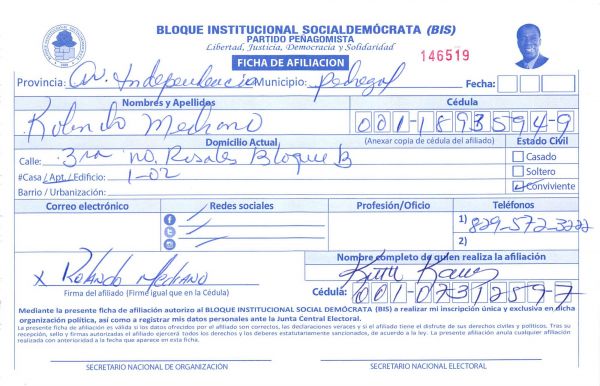 BLOQUE INSTITUCIONAL SOCIALDEMÓCRATA (BIS)
PARTIDO PEÑAGOMISTA
Libertad, Justicia, Democracia y Solidaridad
FICHA DE AFILIACION
146519
Provincia: Av. Independencia Municipio: Pedregal Fecha:
Nombres y Apellidos Cédula
Rolando Medrano 001-1893594-9
Domicilio Actual (Anexar copia de cédula del afiliado) Estado Civil
Calle: 3ra no. Rosales Bloque B Casado
#Casa /Apt./ Edificio: 1-02 Soltero
Barrio / Urbanización: Conviviente
Correo electrónico Redes sociales Profesión/Oficio Teléfonos
1) 829-572-3222
2)
Nombre completo de quien realiza la afiliación
x Rolando Medrano
Firma del afiliado (Firme igual que en la Cédula) Cédula: 001-0731259-7
Mediante la presente ficha de afiliación autorizo al BLOQUE INSTITUCIONAL SOCIAL DEMÓCRATA (BIS) a realizar mi inscripción única y exclusiva en dicha
organización política, así como a registrar mis datos personales ante la Junta Central Electoral.
La presente ficha de afiliación es válida si los datos ofrecidos por el afiliado son correctos, las declaraciones veraces y si el afiliado tiene el disfrute de sus derechos civiles y políticos. Tras su
recepción, sello y firmas autorizadas el afiliado ejercerá todos los derechos y los deberes estatutariamente sancionados, de acuerdo a la ley. La presente afiliación anula cualquier afiliación
realizada con anterioridad a la fecha que aparece en esta ficha.
SECRETARIO NACIONAL DE ORGANIZACIÓN SECRETARIO NACIONAL ELECTORAL